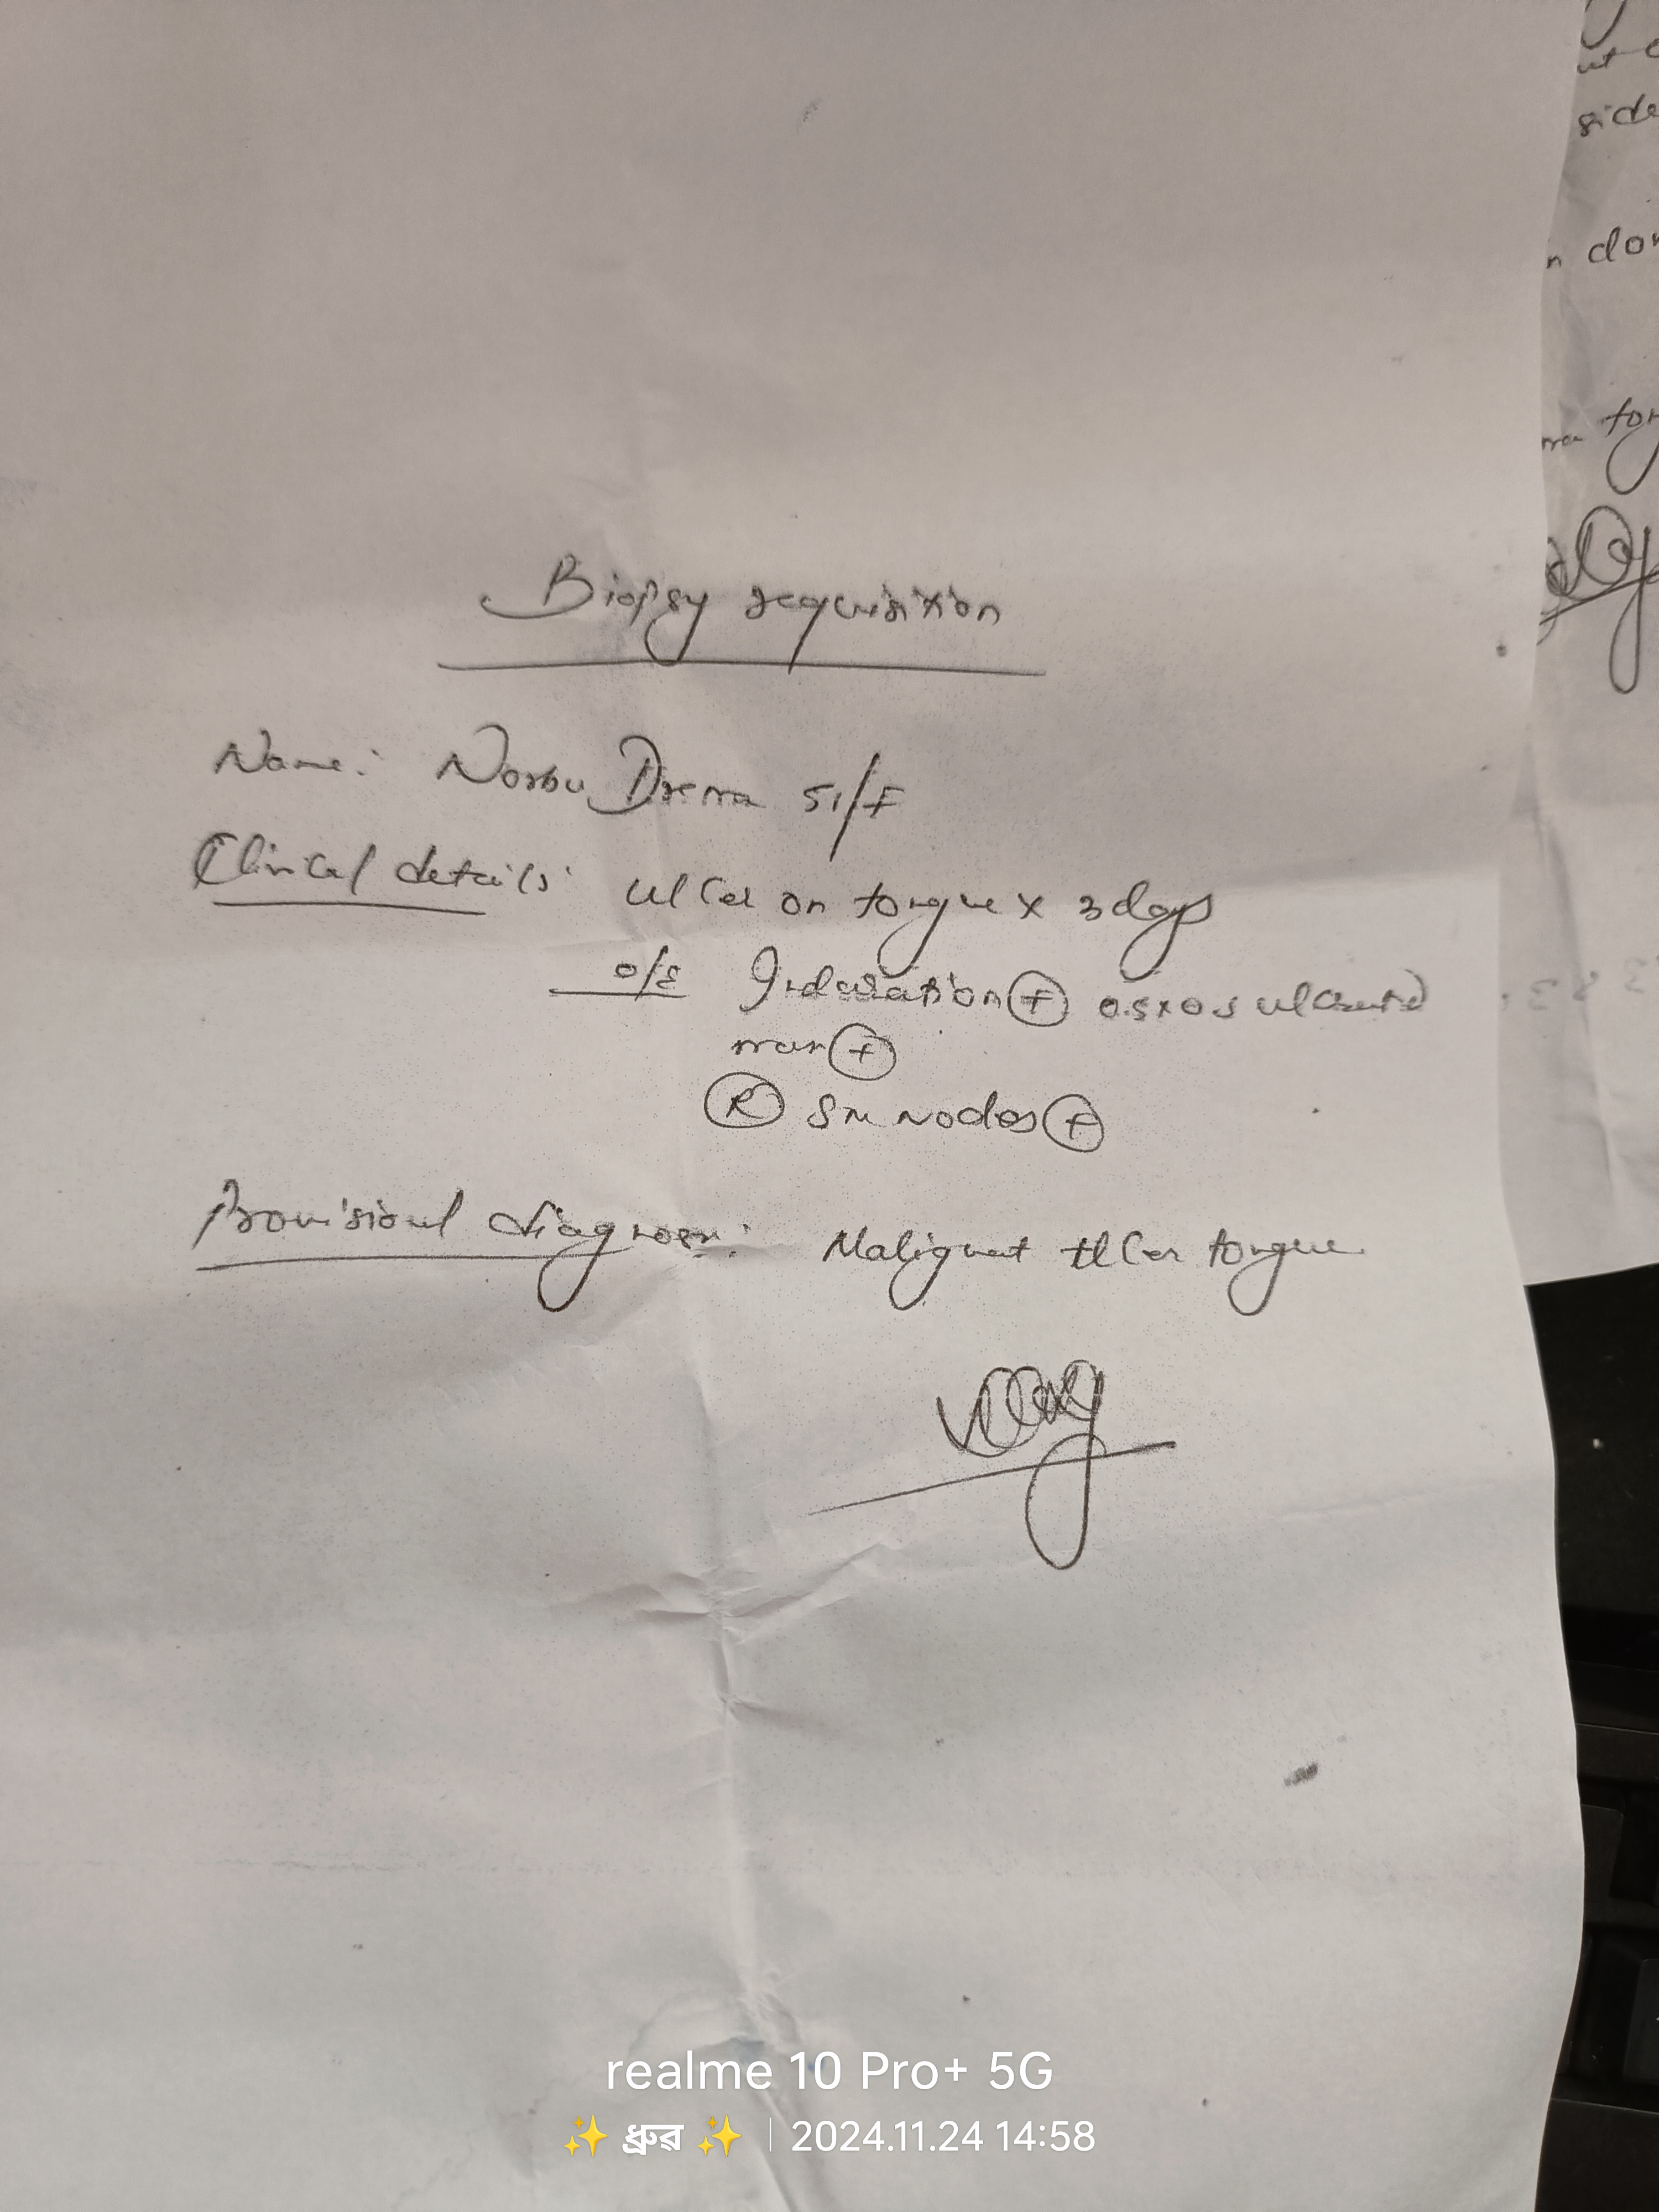 Biopsy requisition
Name: Norbu Drema 51/F
Clinical details: Ulcer on tongue x 3 days
O/E Induration (+) 0.5x0.5 ulcerated
mass (+)
(R) SM nodes (+)
Provisional diagnosis: Malignant Ulcer tongue
side
realme 10 Pro+ 5G
✨ ধ্ৰুৱ ✨ | 2024.11.24 14:58